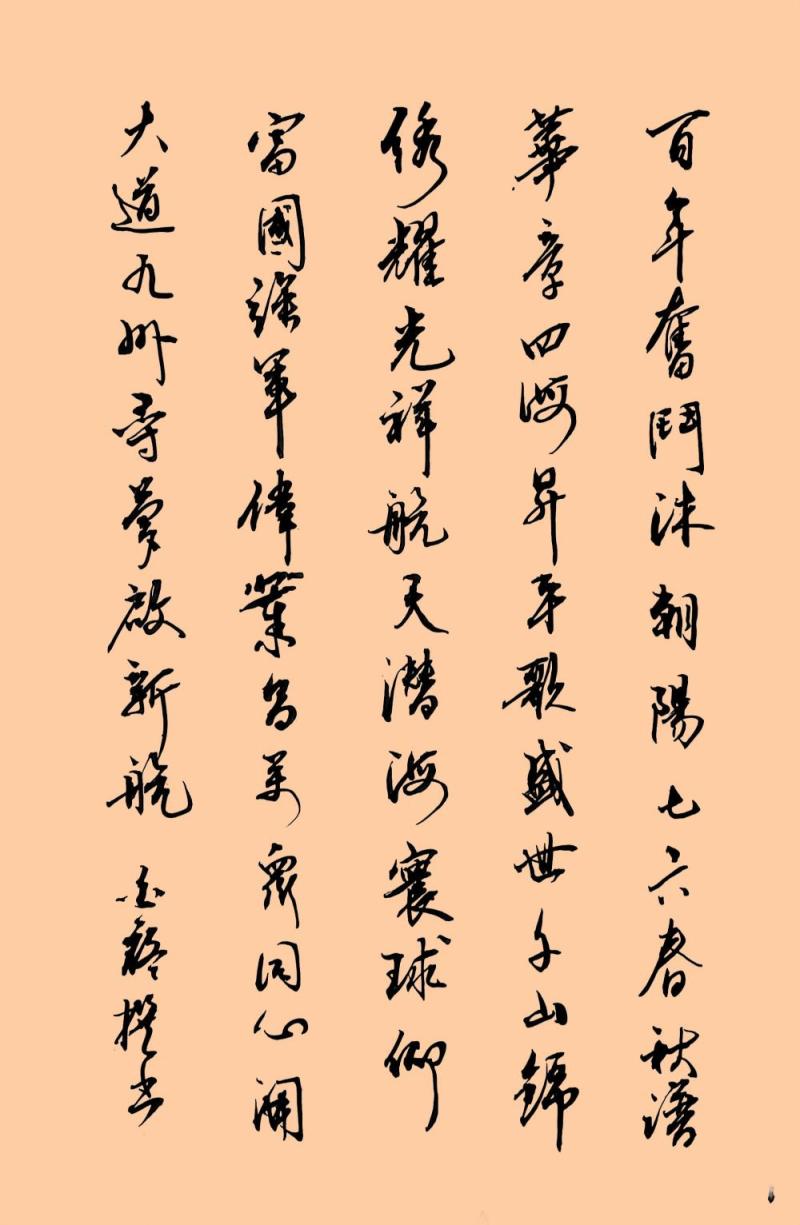 百年奮鬥沐朝陽七六春秋譜
華章四海昇平歌盛世千山錦
綉耀光祥航天潛海寰球仰
富國強軍偉業昌萬眾同心闊
大道九州尋夢啟新航 撰書